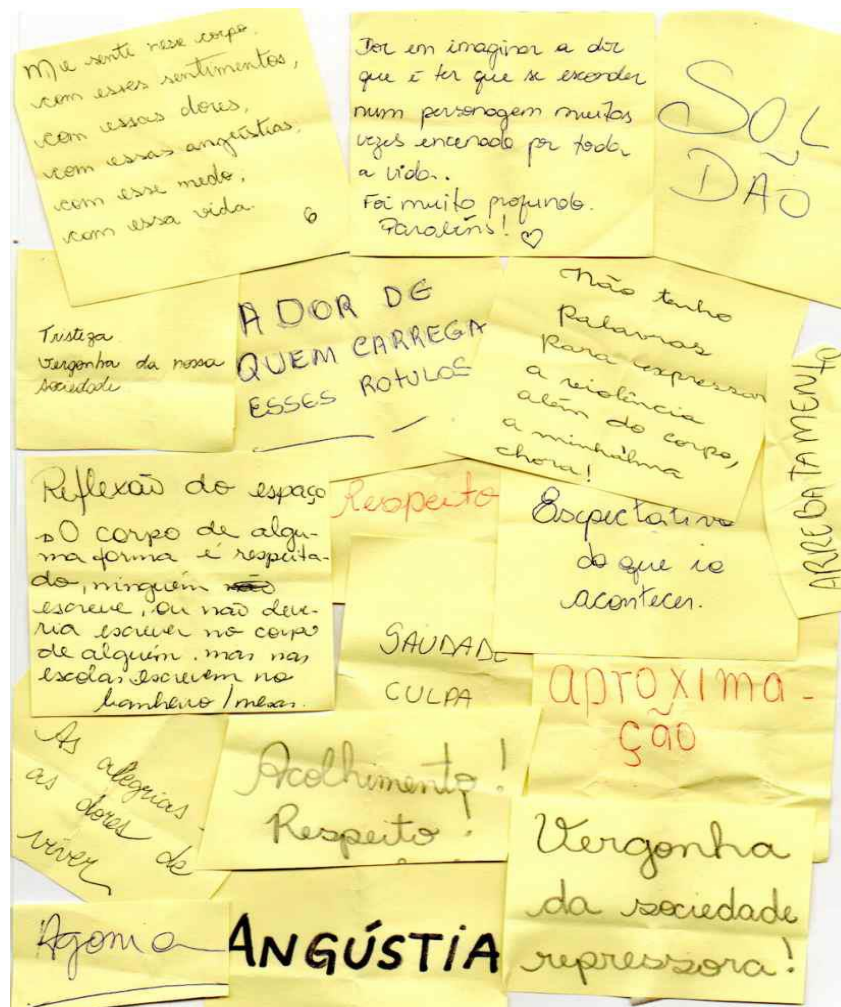 Me senti nesse corpo,
com esses sentimentos,
com essas dores,
com essas angústias,
com esse medo,
com essa vida. 6
Dor em imaginar a dor
que é ter que se esconder
num personagem muitas
vezes encenado por toda
a vida.
Foi muito profundo.
Parabéns! ♡
SOL
DÃO
Tristeza
Vergonha da nossa
sociedade
A DOR DE
QUEM CARREGA
ESSES ROTULOS
Não tenho
Palavras
Para expressar
a violência
além do corpo,
a minhalma
chora!
ARREBATAMENTO
Reflexão do espaço
O corpo de algu-
ma forma é respeita-
do, ninguém não
escreve, ou não deve-
ria escrever no corpo
de alguém. mas nas
escolas escrevem no
banheiro/mesas.
Respeito
Expectativa
do que ia
acontecer.
SAUDADE
CULPA
aproxima-
ção
As alegrias
as dores de
viver
Acolhimento!
Respeito!
Vergonha
da sociedade
repressora!
Agonia
ANGÚSTIA